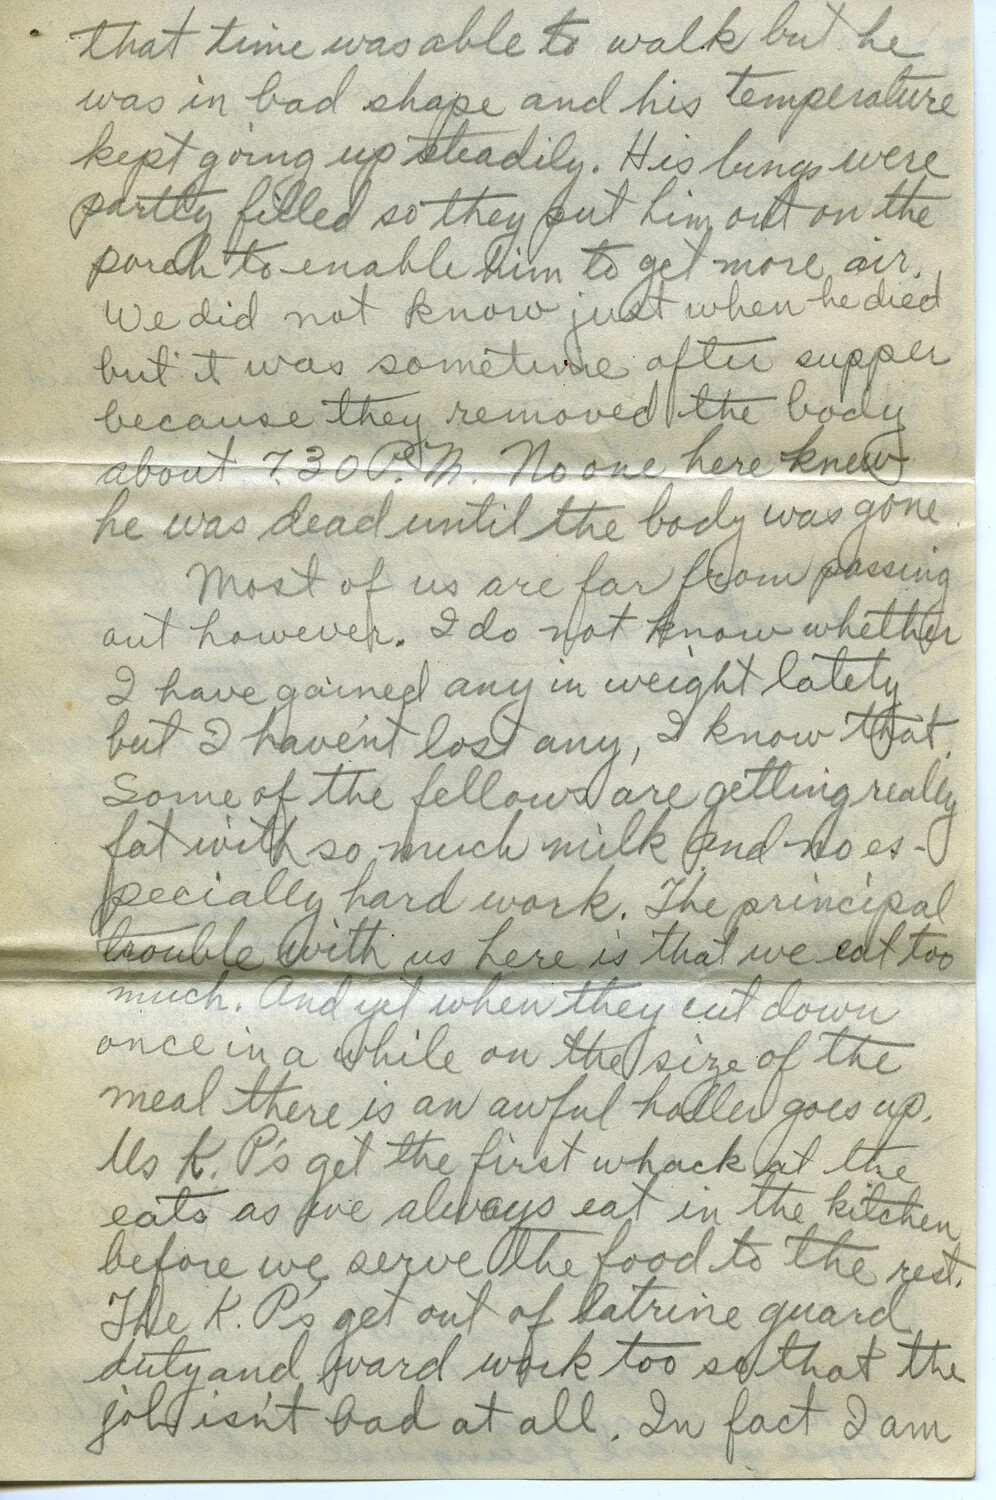 that time was able to walk but he
was in bad shape and his temperature
kept going up steadily. His lungs were
partly filled so they put him out on the
porch to enable him to get more air.
We did not know just when he died
but it was sometime after supper
because they removed the body
about 7.30 P.M. No one here knew
he was dead until the body was gone.
Most of us are far from passing
out however. I do not know whether
I have gained any in weight lately
but I haven't lost any, I know that.
Some of the fellows are getting really
fat with so much milk and no es-
pecially hard work. The principal
trouble with us here is that we eat too
much. And yet when they cut down
once in a while on the size of the
meal there is an awful holler goes up.
Us K. P's get the first whack at the
eats as we always eat in the kitchen
before we serve the food to the rest.
The K. P's get out of latrine guard
duty and ward work too so that the
job isn't bad at all. In fact I am